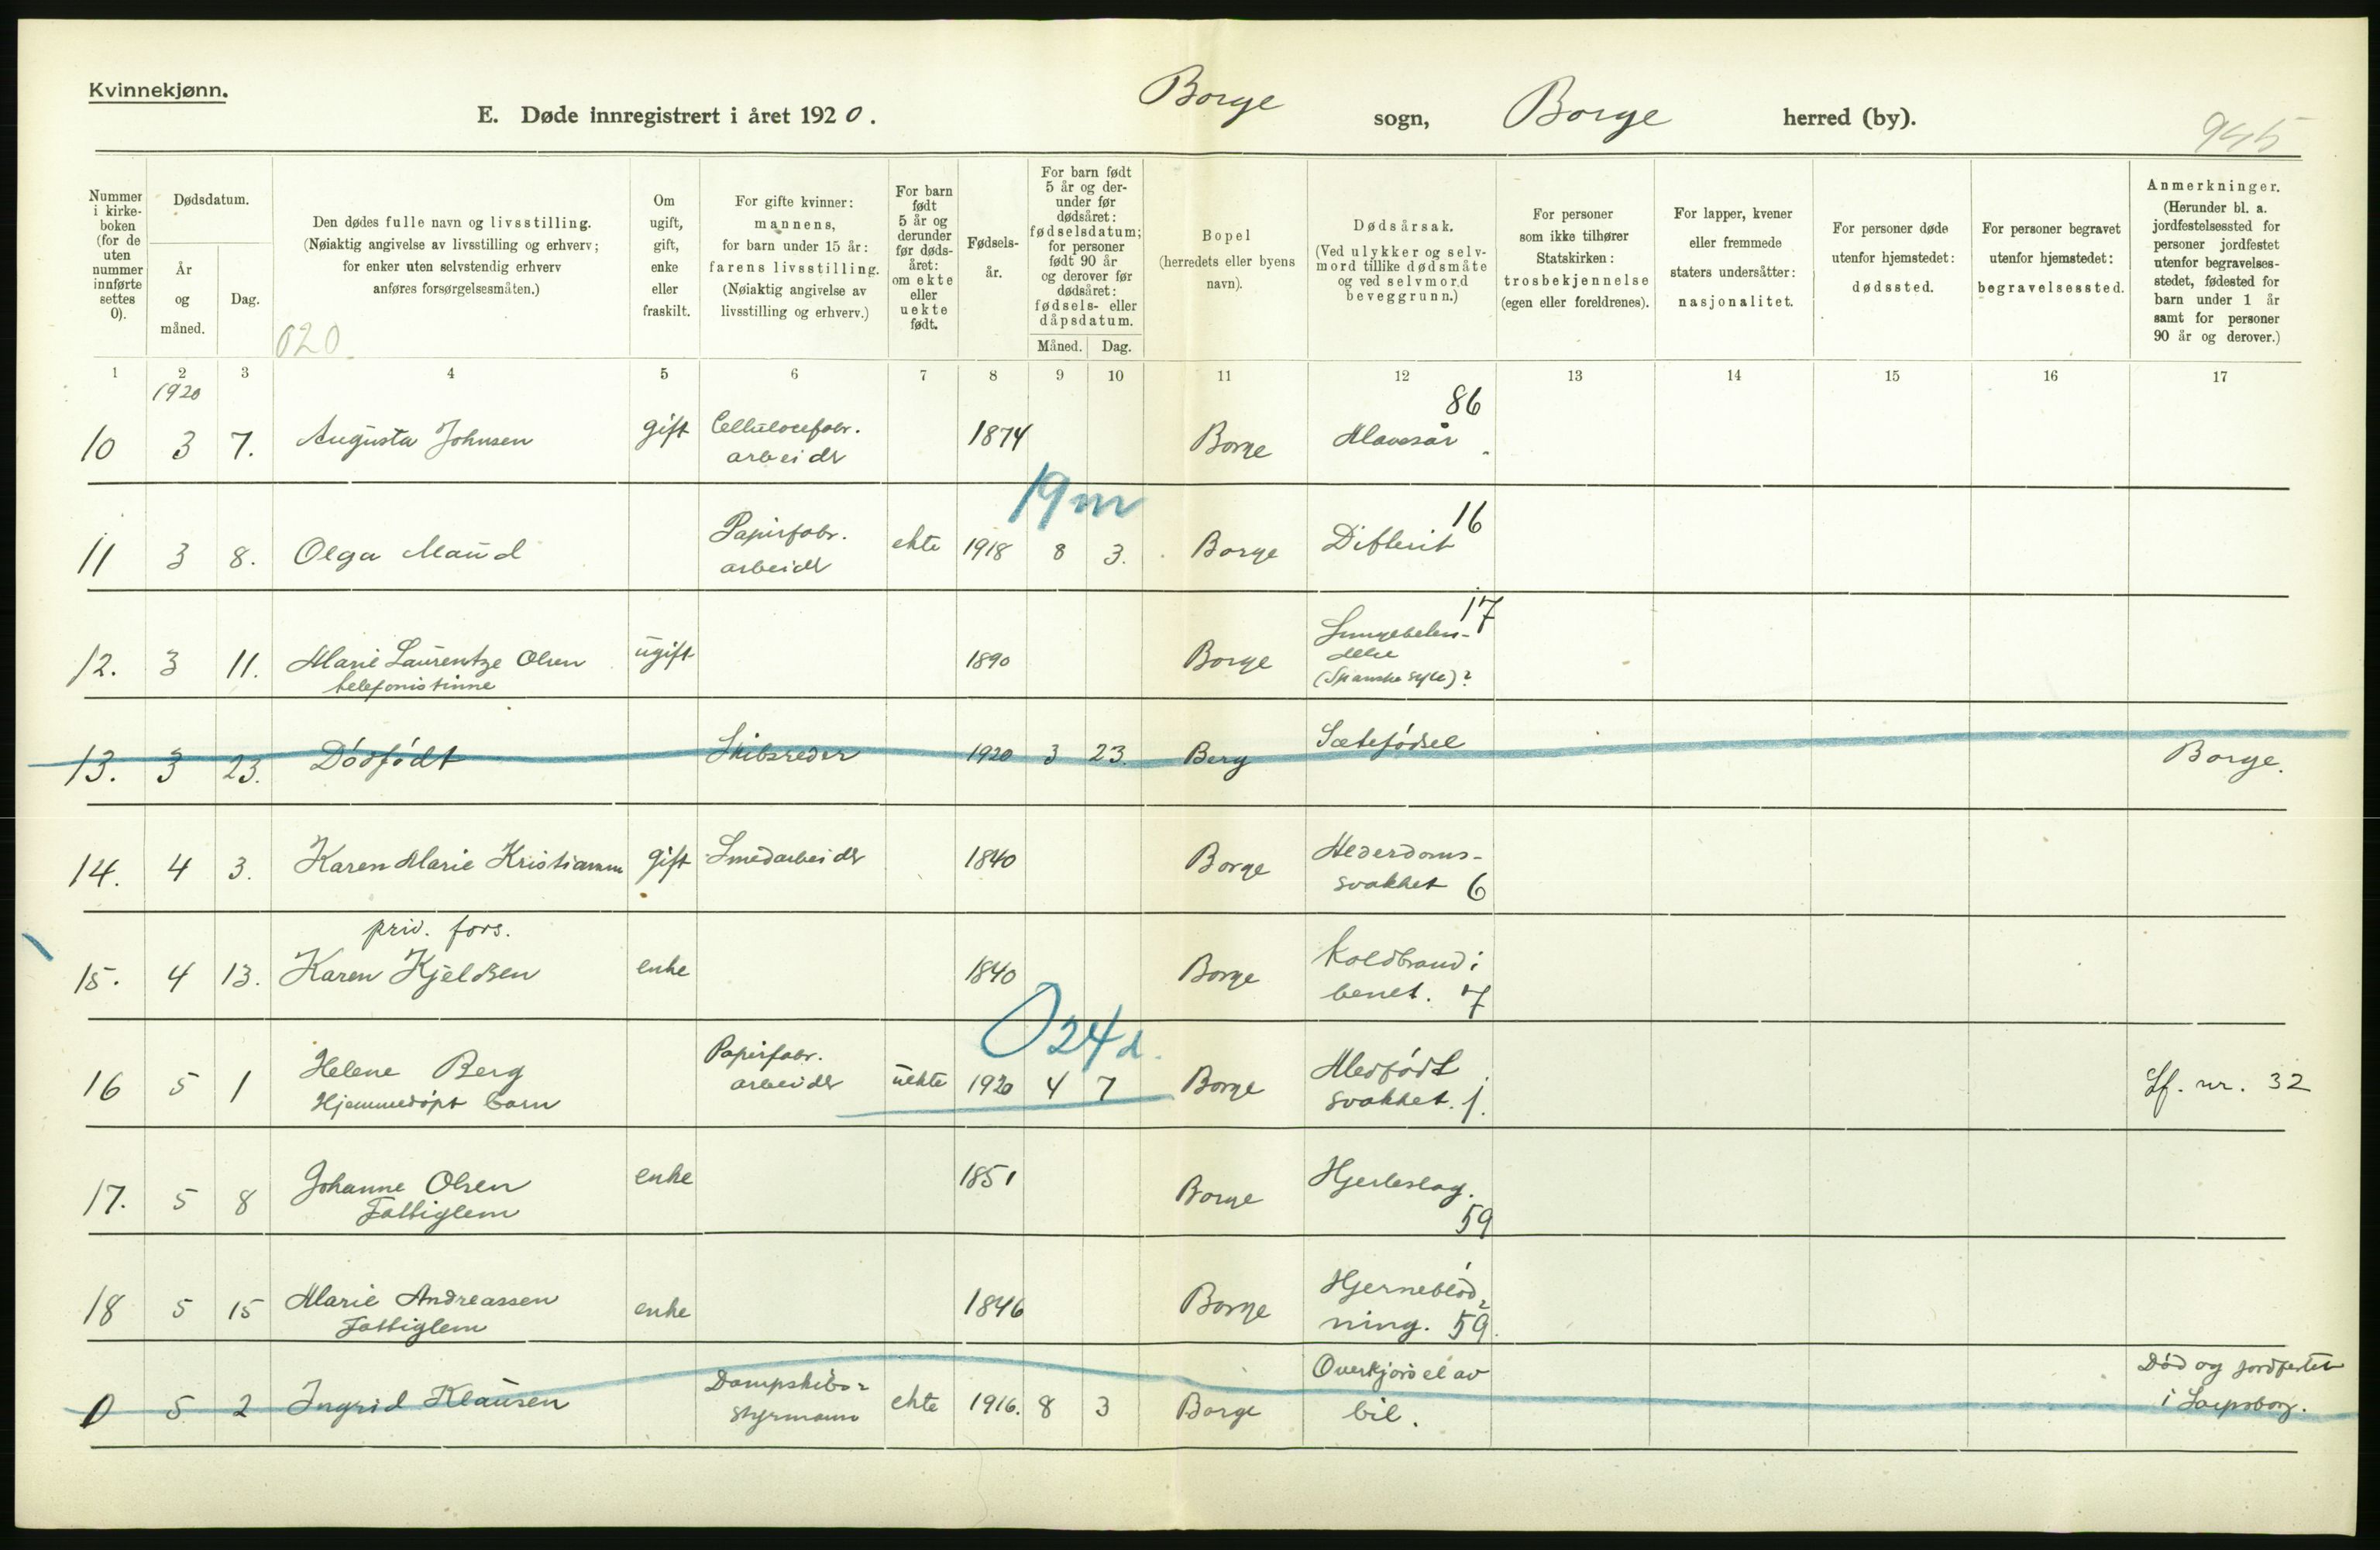 Kvinnekjønn.
E. Døde innregistrert i året 1920. Borge sogn, Borge herred (by).
945
Nummer i kirkeboken (for de uten nummer innførte settes 0).
Dødsdatum.
År og måned.
Dag.
Den dødes fulle navn og livsstilling. (Nøiaktig angivelse av livsstilling og erhverv; for enker uten selvstendig erhverv anføres forsørgelsesmåten.)
020
Om ugift, gift, enke eller fraskilt.
For gifte kvinner: mannens, for barn under 15 år: farens livsstilling. (Nøiaktig angivelse av livsstilling og erhverv.)
For barn født 5 år og derunder før dødsåret: om ekte eller uekte født.
Fødselsår.
For barn født 5 år og derunder før dødsåret: fødselsdatum; for personer født 90 år og derover før dødsåret: fødsels- eller dåpsdatum.
Måned. Dag.
Bopel (herredets eller byens navn).
Dødsårsak. (Ved ulykker og selvmord tillike dødsmåte og ved selvmord beveggrunn.)
For personer som ikke tilhører Statskirken: trosbekjennelse (egen eller foreldrenes).
For lapper, kvener eller fremmede staters undersåtter: nasjonalitet.
For personer døde utenfor hjemstedet: dødssted.
For personer begravet utenfor hjemstedet: begravelsessted.
Anmerkninger. (Herunder bl. a. jordfestelsessted for personer jordfestet utenfor begravelsesstedet, fødested for barn under 1 år samt for personer 90 år og derover.)
1 2 3 4 5 6 7 8 9 10 11 12 13 14 15 16 17
1920
86
10 3 7. Augusta Johnsen gift Cellulosefabr. arbeider 1874 Borge Mavesår
19 m
11 3 8. Olga Maud Papirfabr. arbeider ekte 1918 8 3. Borge Difterit 16
12. 3 11. Marie Laurentze Olsen telefonistinne ugift 1890 Borge Lungebetendelse (Spanske syke)? 17
13. 3 23. Dødfødt Skibsreder 1920 3 23. Berg Sætefødsel Borge.
14. 4 3. Karen Marie Kristiansen gift Smedarbeider 1840 Borge Alderdomssvakhet 6
priv. fors.
15. 4 13. Karen Kjeldsen enke 1840 Borge Koldbrand i benet. 7
0 24 d.
16 5 1 Helene Berg Hjemmedøpt barn Papirfabr. arbeider uekte 1920 4 7 Borge Medfødt svakhet. 1. Lf. nr. 32
17. 5 8 Johanne Olsen Fattiglem enke 1851 Borge Hjerteslag. 59
18 5 15 Marie Andreassen Fattiglem enke 1846 Borge Hjerneblødning. 59.
0 5 2 Ingrid Klausen Dampskibsstyrmann ekte 1916. 8 3 Borge Overkjørsel av bil. Død og jordfestet i Sarpsborg.